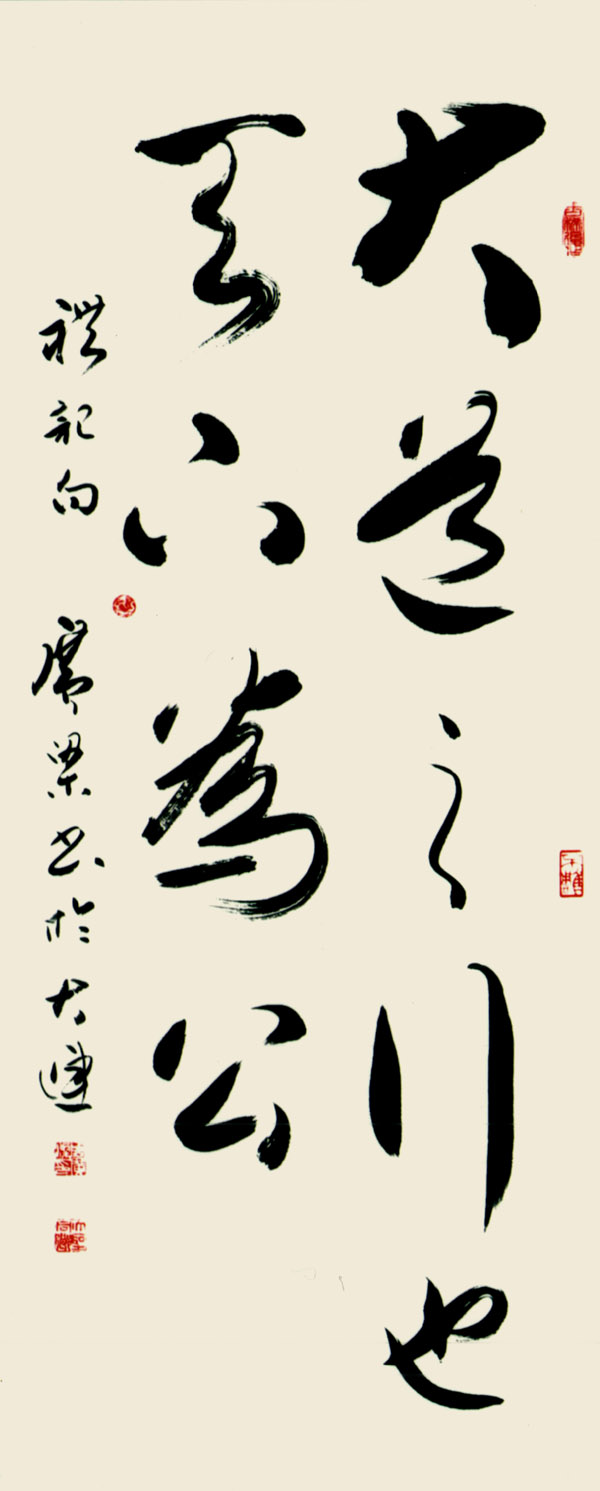 大道之行也
天下為公
禮記句 廣梁書於大連